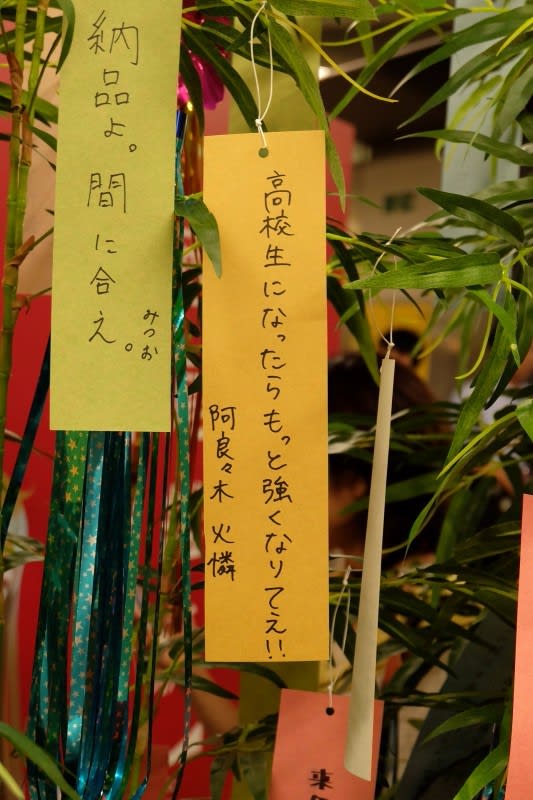 高校生になったらもっと強くなりてえ!!
阿良々木 火憐
納品よ。間に合え。
みつお